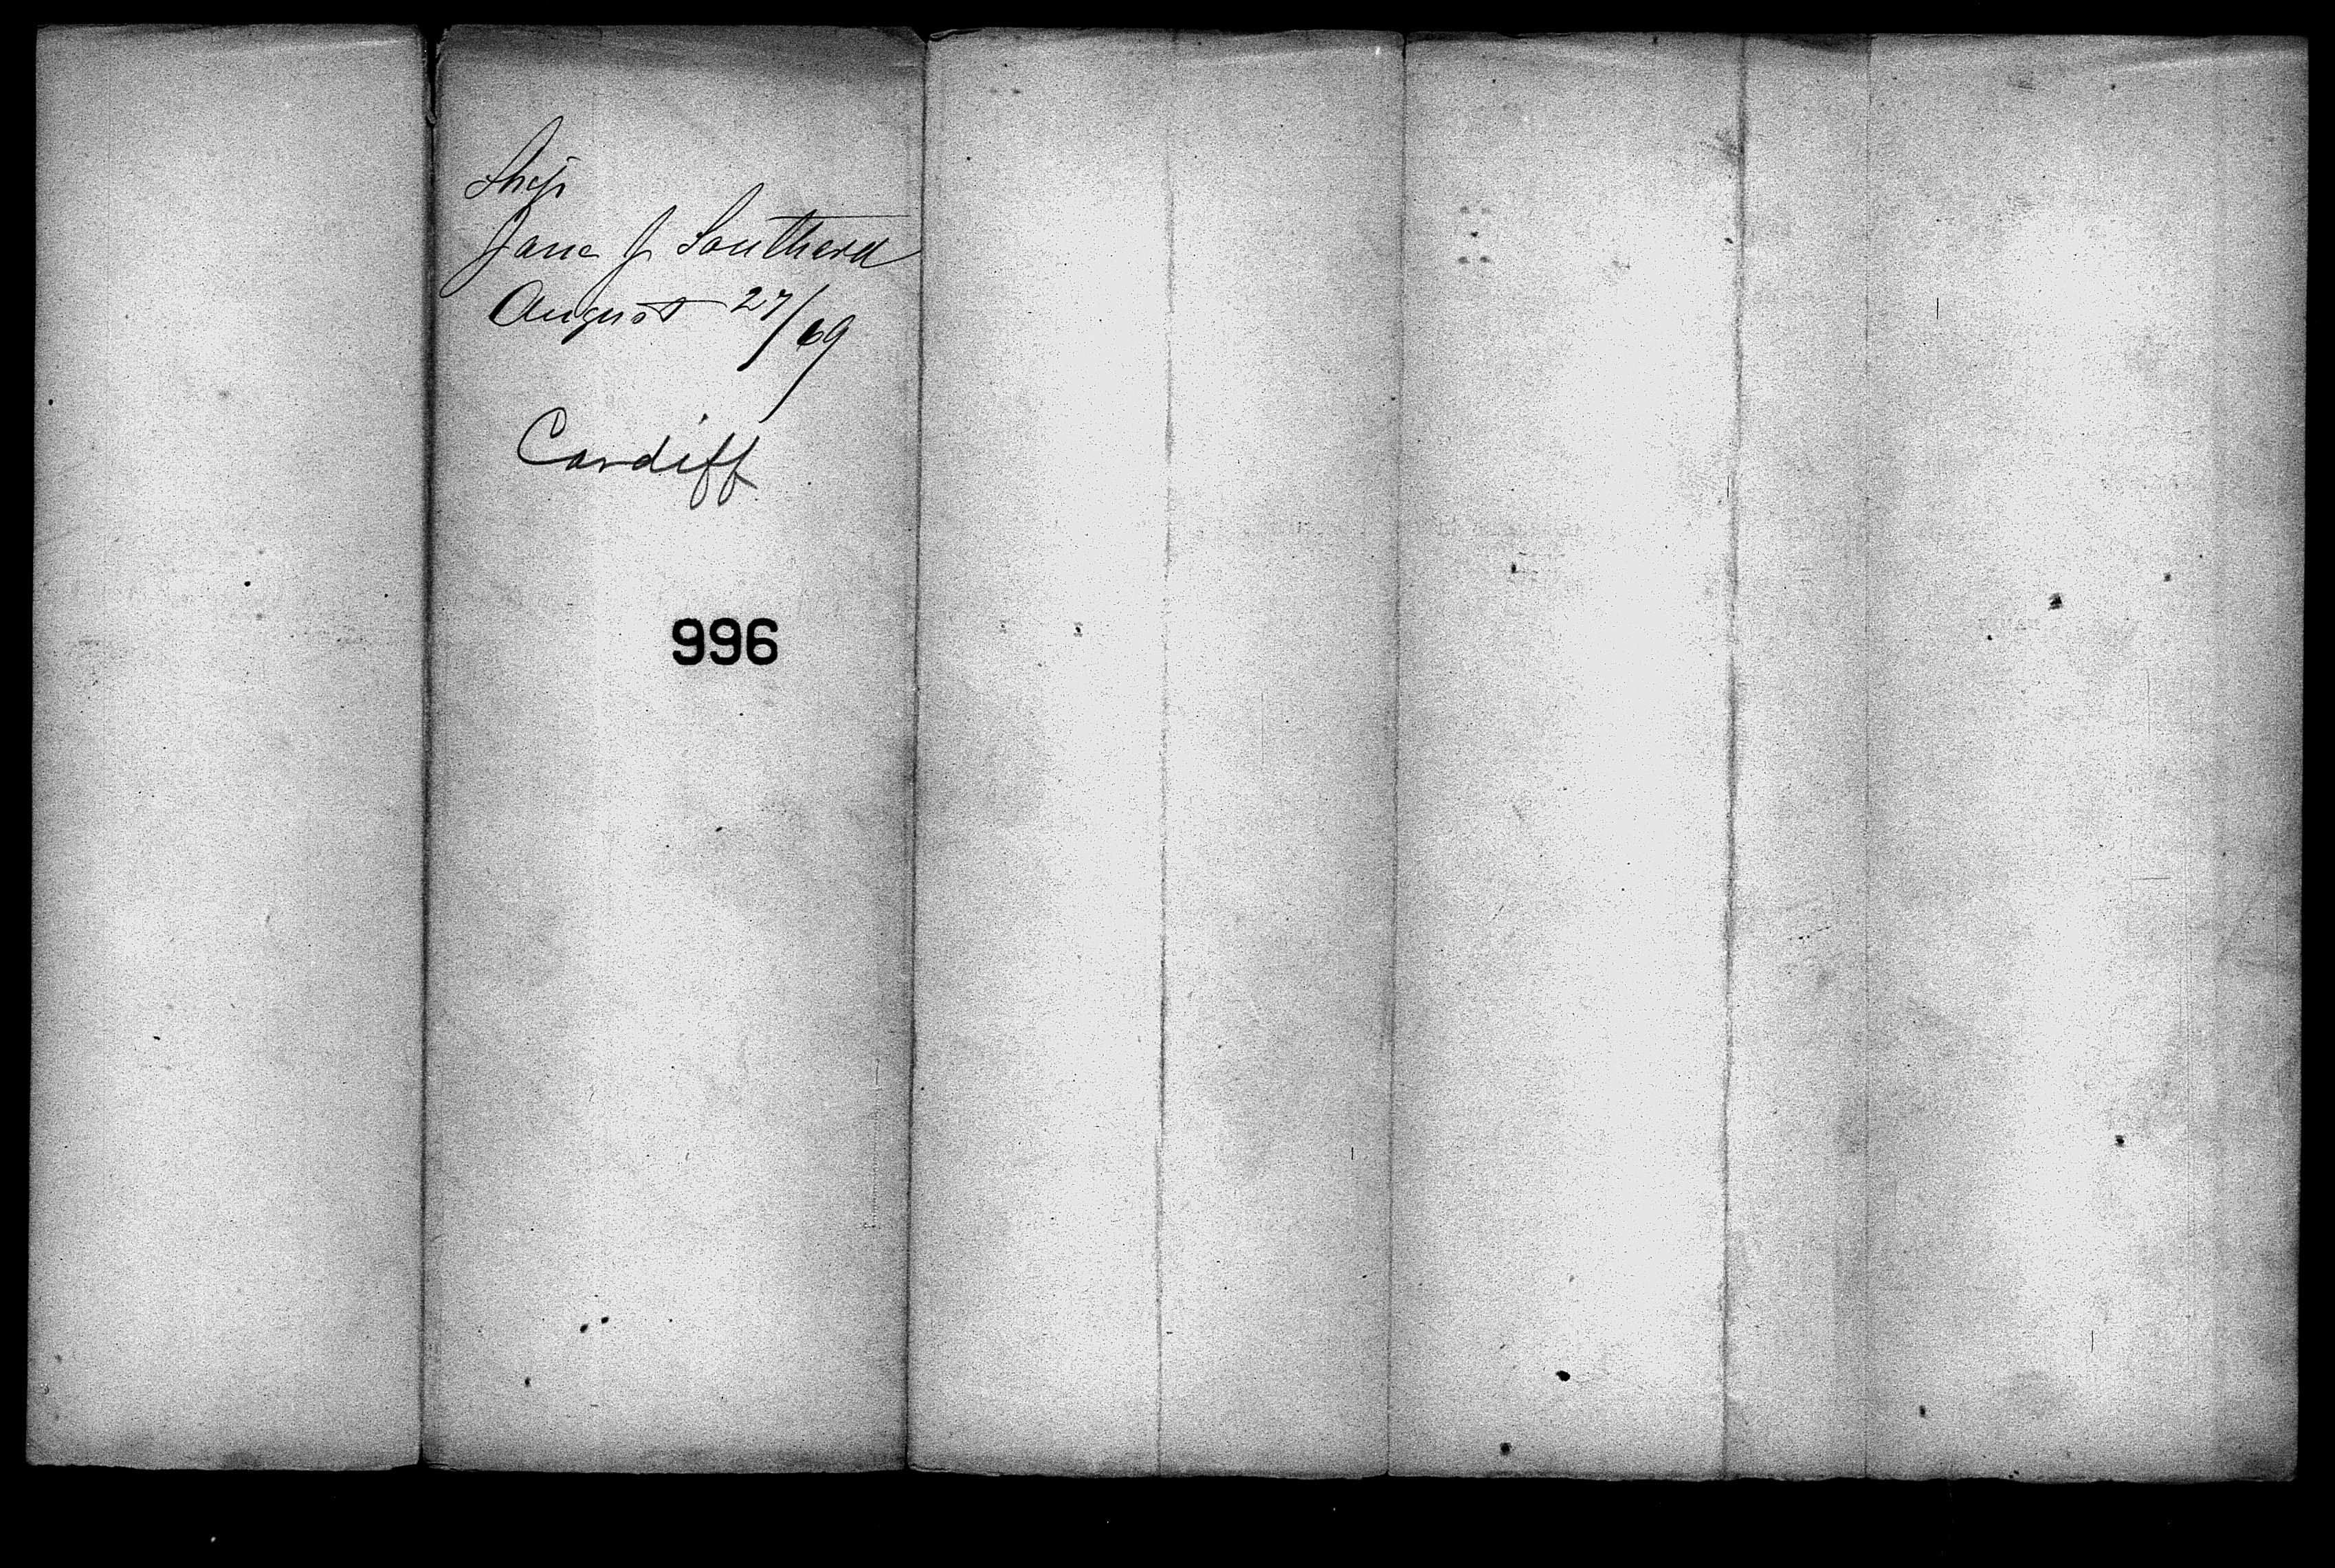 Ship
Jane J Southard
August 27/69
Cardiff
996